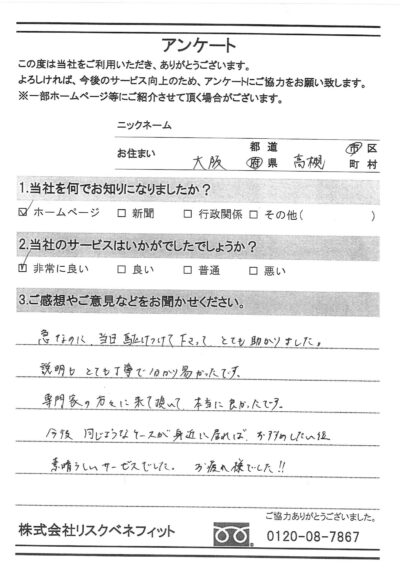 アンケート
この度は当社をご利用いただき、ありがとうございます。
よろしければ、今後のサービス向上のため、アンケートにご協力をお願い致します。
※一部ホームページ等にご紹介させて頂く場合がございます。
ニックネーム
お住まい 大阪 都道府県 高槻 市区町村
1.当社を何でお知りになりましたか?
☑ホームページ □新聞 □行政関係 □その他( )
2.当社のサービスはいかがでしたでしょうか?
☑非常に良い □良い □普通 □悪い
3.ご感想やご意見などをお聞かせください。
急なのに、当日駆けつけて下さって、とても助かりました。
説明もとても丁寧で分かり易かったです。
専門家の方に来て頂いて、本当に良かったです。
今後 同じようなケースが身近に居れば、おすすめしたい位
素晴らしいサービスでした。 お疲れ様でした!!
ご協力ありがとうございました。
株式会社リスクベネフィット 0120-08-7867